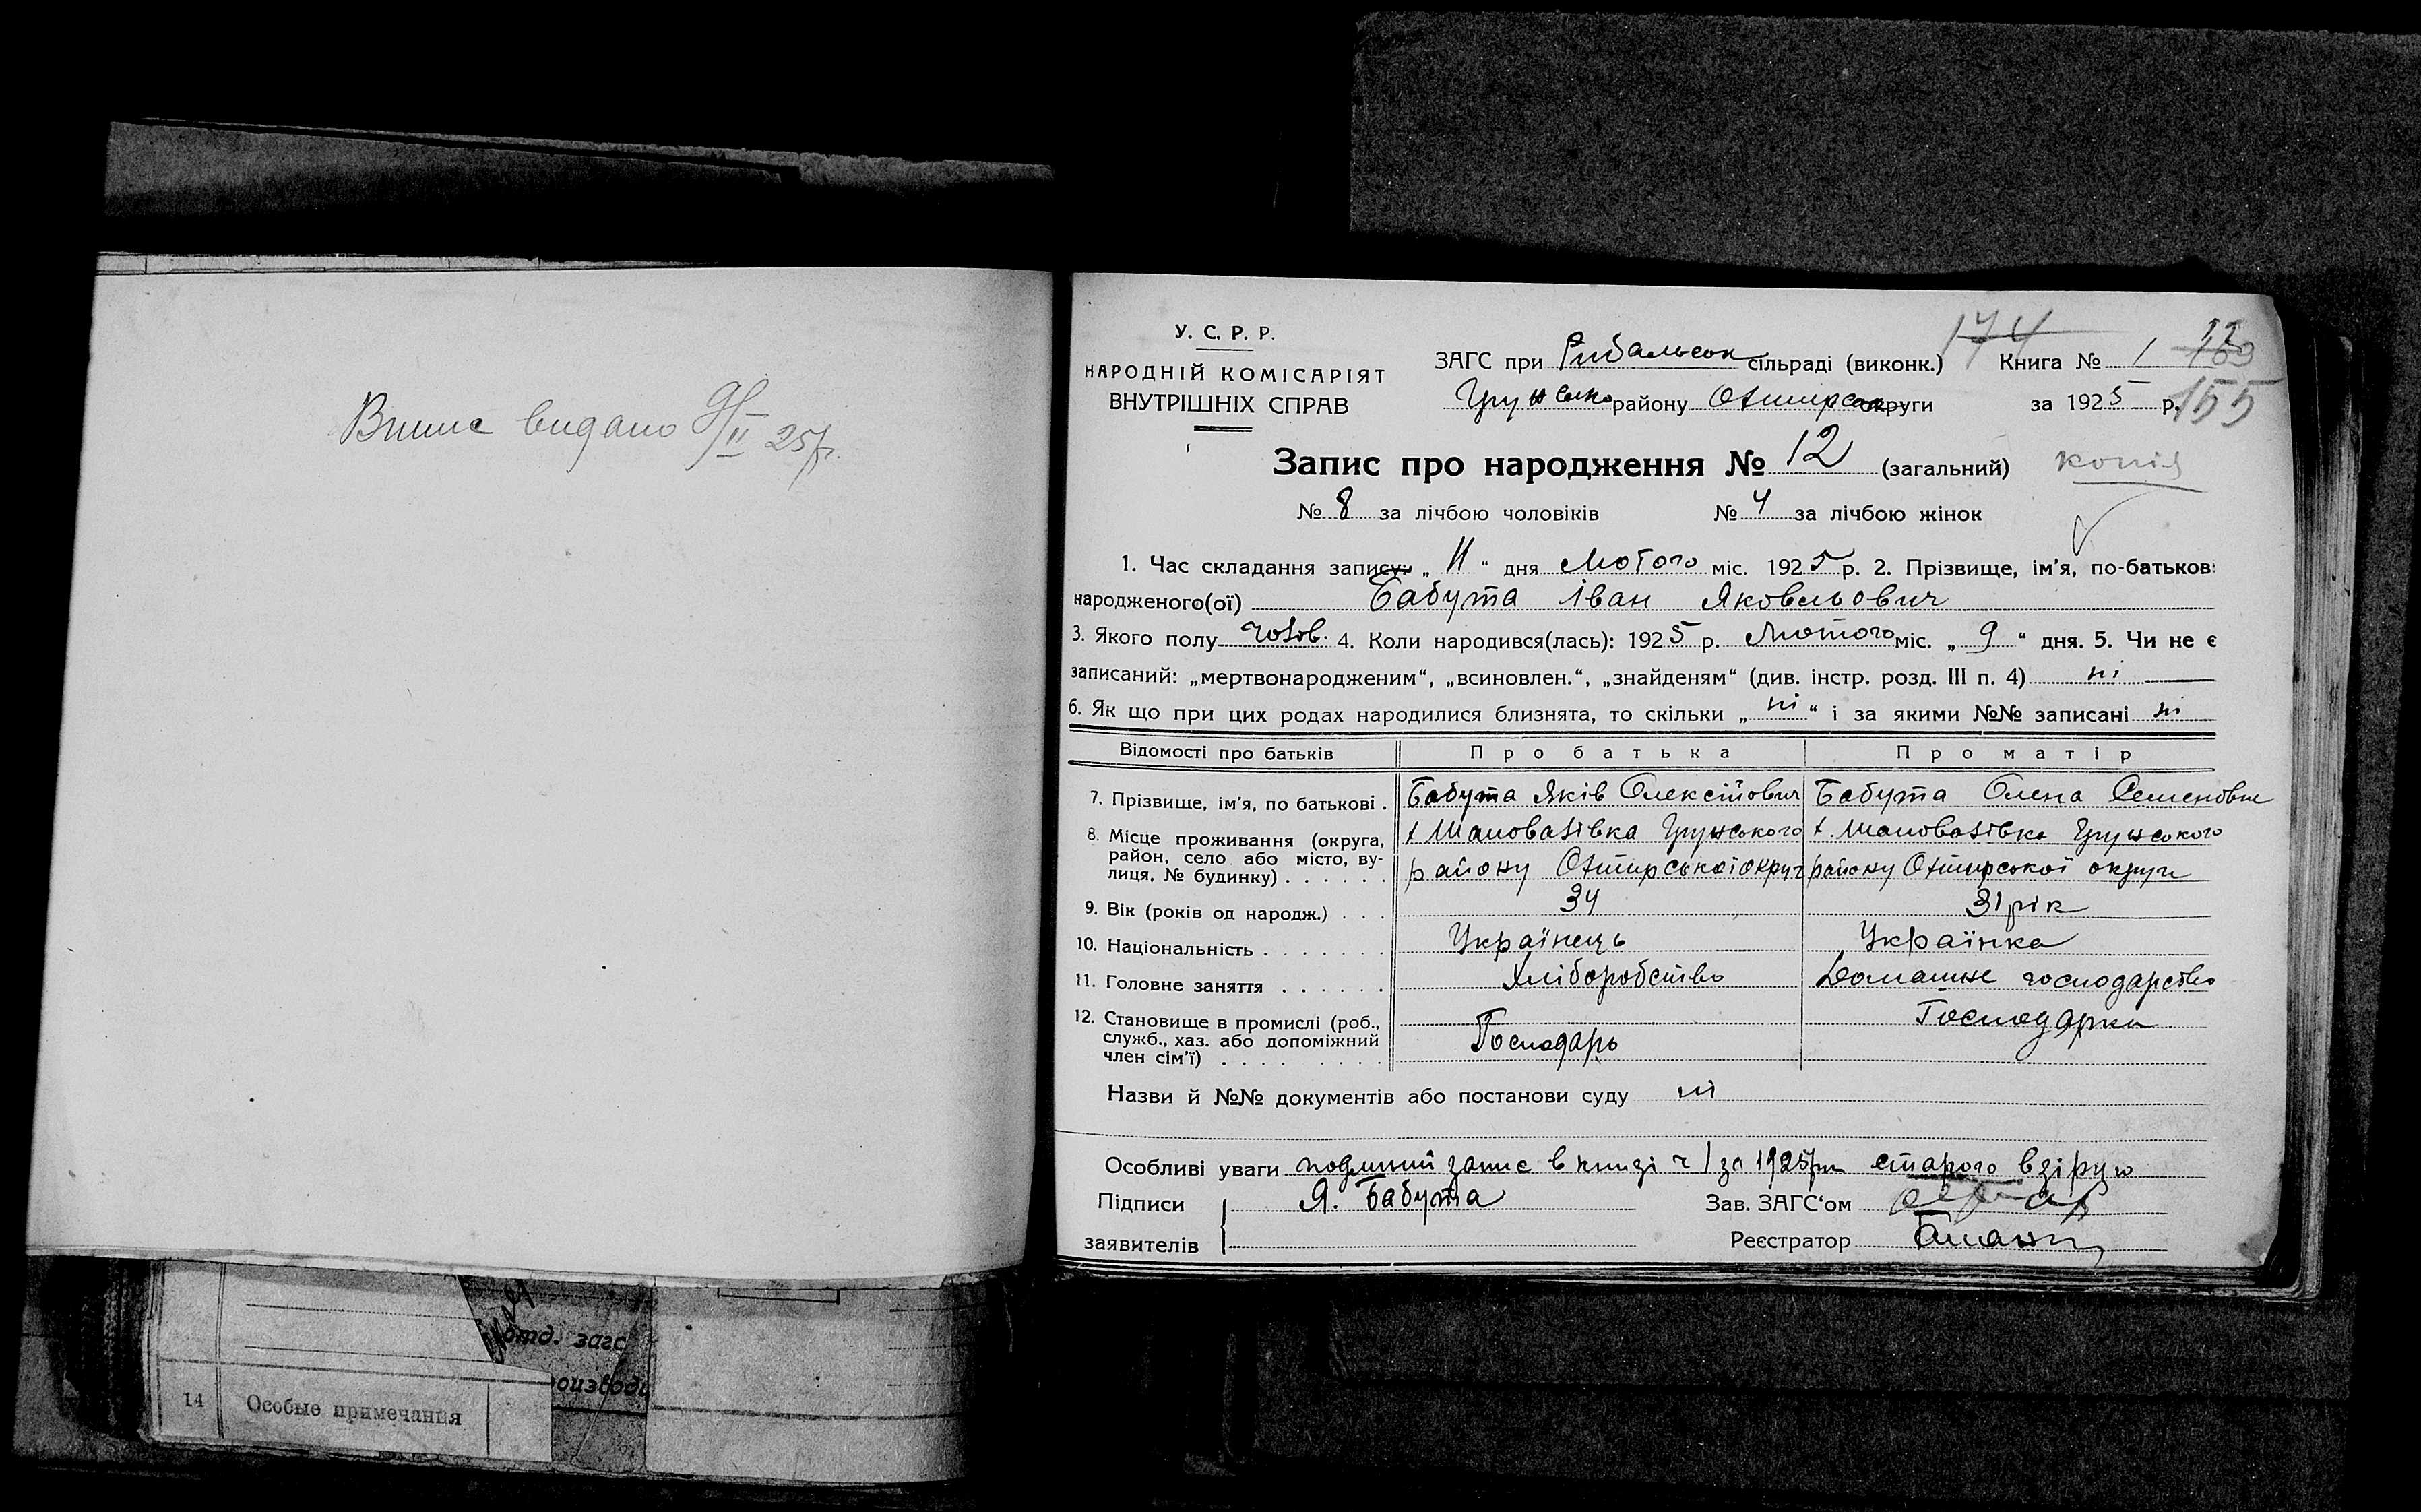 Впис видано 9/II 25р.
отд. загс
14 Особые примечания
У. С. Р. Р.
НАРОДНІЙ КОМІСАРІЯТ
ВНУТРІШНІХ СПРАВ
174
ЗАГС при Рибальськ сільраді (виконк.) Книга № 1
12
155
Грунсько району Охтирськ округи за 1925 р.
Запис про народження № 12 (загальний)
копія
№ 8 за лічбою чоловіків № 4 за лічбою жінок
1. Час складання запису: „ 11 “ дня Лютого міс. 1925 р. 2. Прізвище, ім'я, по-батькові
народженого(ої) Бабута Іван Яковльович
3. Якого полу чолов. 4. Коли народився(лась): 1925 р. Лютого міс. „ 9 “ дня. 5. Чи не є
записаний: „мертвонародженим“, „всиновлен.“, „знайденям“ (див. інстр. розд. III п. 4) ні
6. Як що при цих родах народилися близнята, то скільки „ ні “ і за якими №№ записані ні
Відомості про батьків Про батька Про матір
7. Прізвище, ім'я, по батькові . Бабута Яків Олексійович Бабута Олена Семеновна
8. Місце проживання (округа, район, село або місто, вулиця, № будинку) . . . . . .
х. Шаповалівка Грунського х. Шаповалівка Грунського
району Охтирської округ району Охтирської округи
9. Вік (років од народж.) . . . 34 31 рік
10. Національність . . . . . . . Українець Українка
11. Головне заняття . . . . . . Хліборобство Домашнє господарство
12. Становище в промислі (роб., служб., хаз. або допоміжний член сім'ї) . . . . . . . .
Господарь Господарка
Назви й №№ документів або постанови суду ні
Особливі уваги подлиний запис в книзі ч 1 за 1925 рік старого взірцю
Підписи Я. Бабута Зав. ЗАГС'ом
заявителів Реєстратор